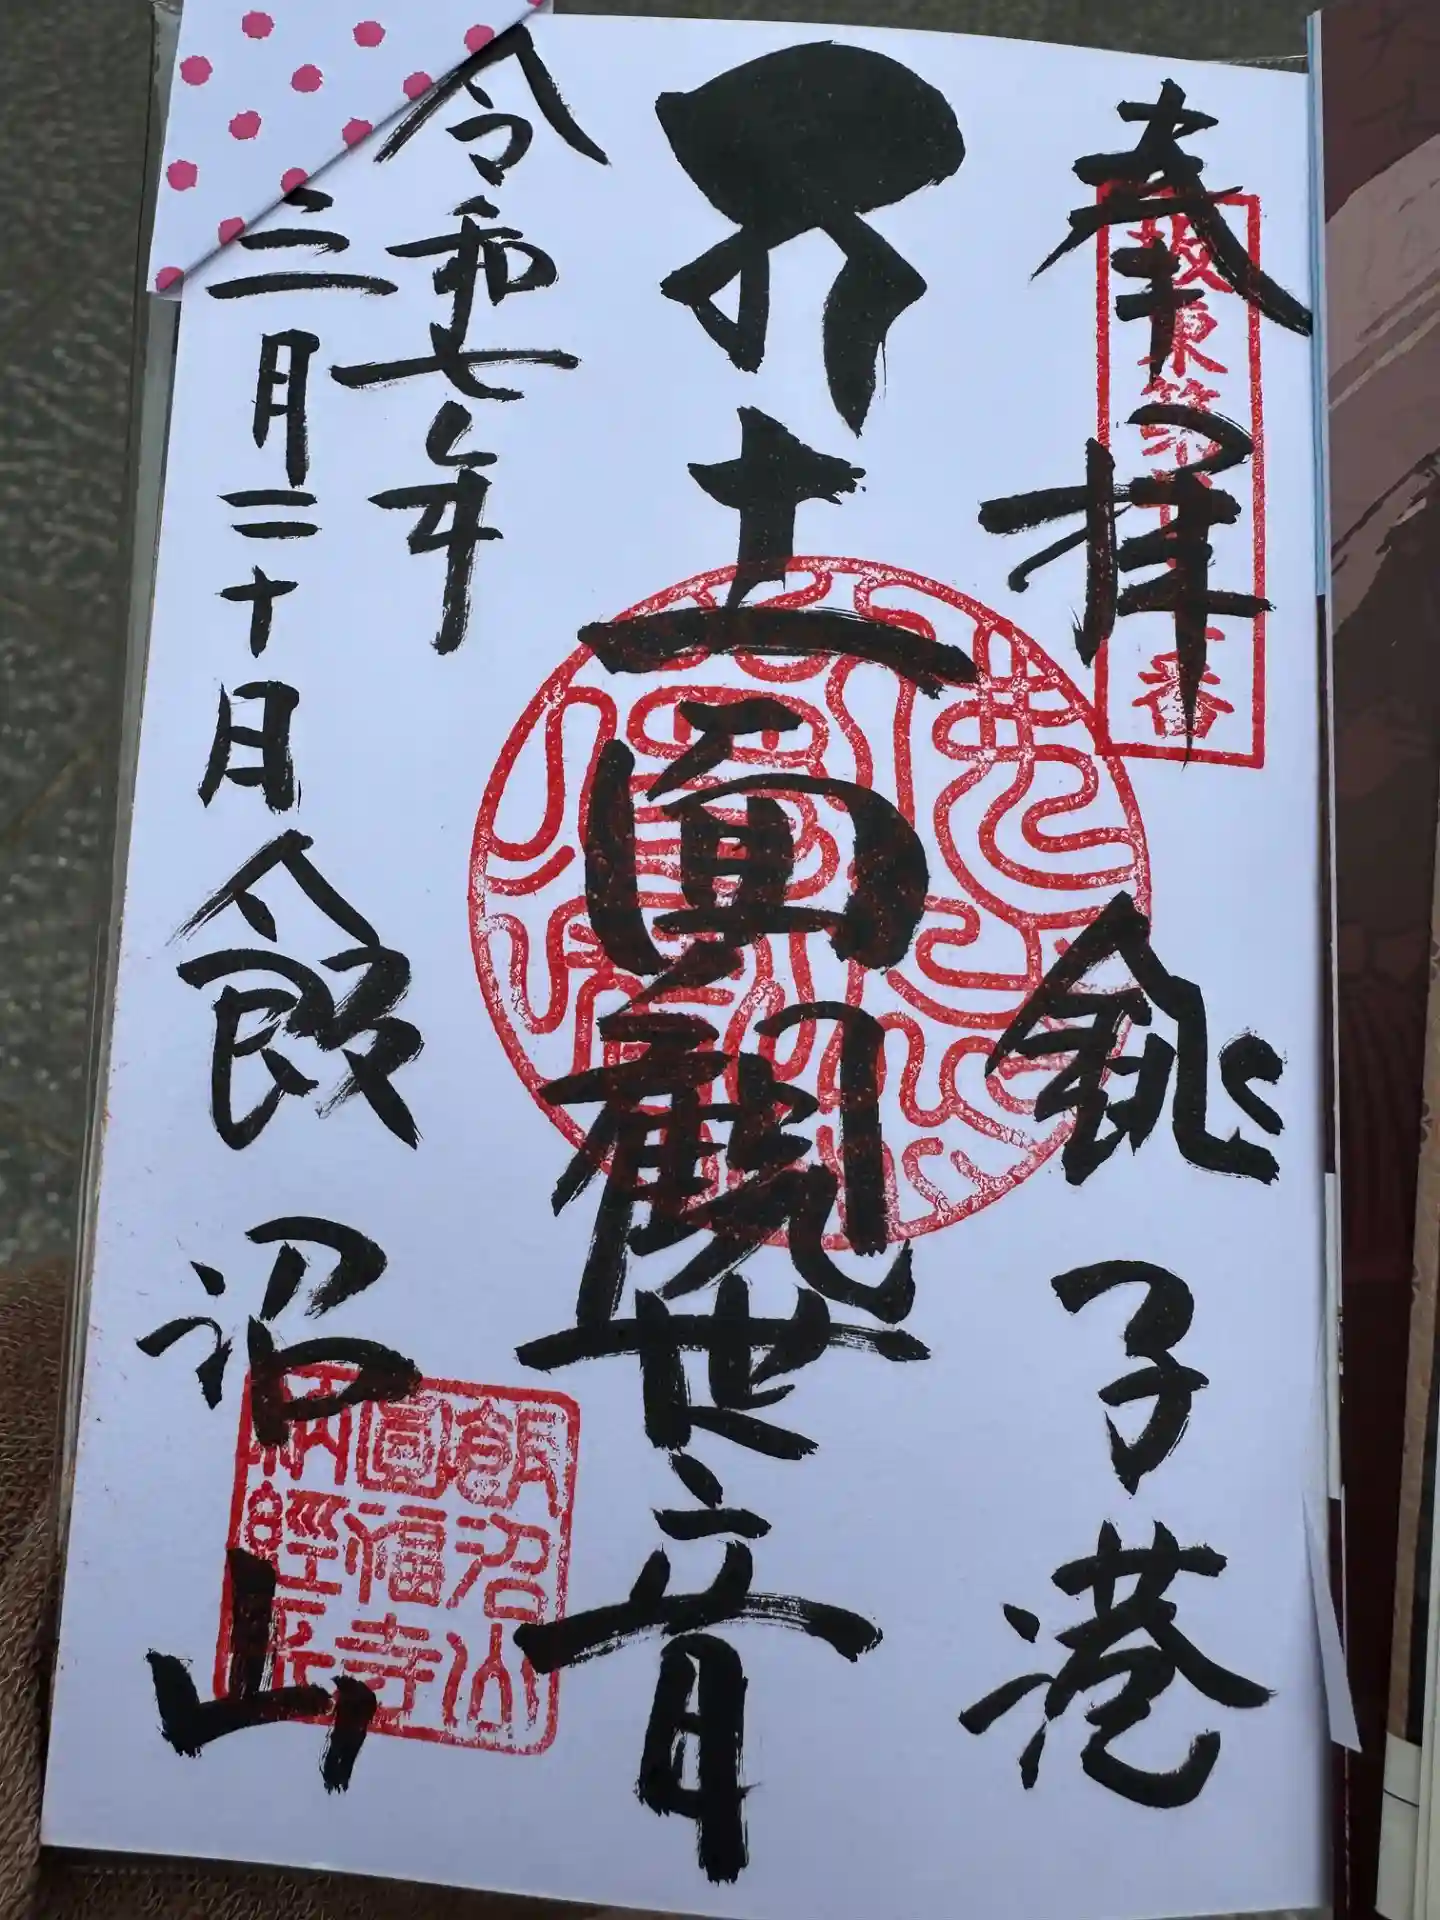 奉拝
銚子港
坂東第
番
十一面観世音
令和七年
三月二十日
飯沼山
飯沼山
圓福寺
納経